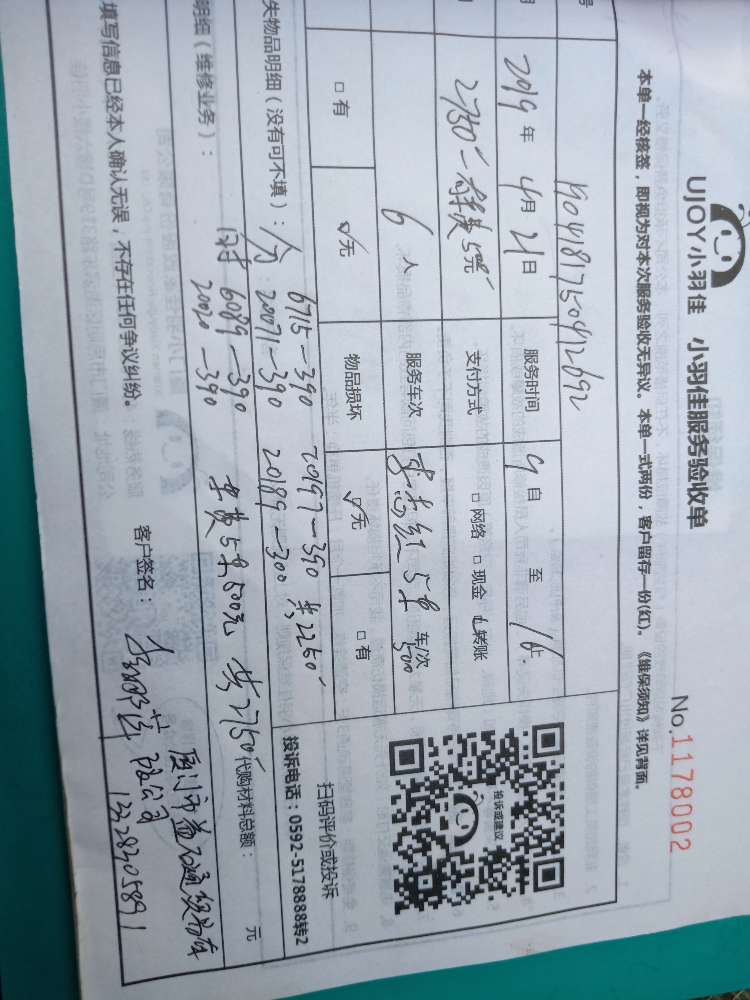 UJOY小羽佳 小羽佳服务验收单
No.1178002
本单一经核签，即视为对本次服务验收无异议。本单一式两份，客户留存一份(红)。《维保须知》详见背面。
号
2019年 4月 21日 服务时间 9自 至 16止
2750 支付方式 □网络 □现金 ☑转账
6人 服务车次 5车 车/次 500
□有 ☑无 物品损坏 ☑无 □有
投诉或建议
扫码评价或投诉
投诉电话：0592-5178888转2
失物品明细（没有可不填）：
6715—390 20197—390 共2250
20071—390 20189—300
明细（维修业务）：
6089—390
2020—390 车费5车500元 共2750 代购材料总额： 元
填写信息已经本人确认无误，不存在任何争议纠纷。 客户签名：
13328305891